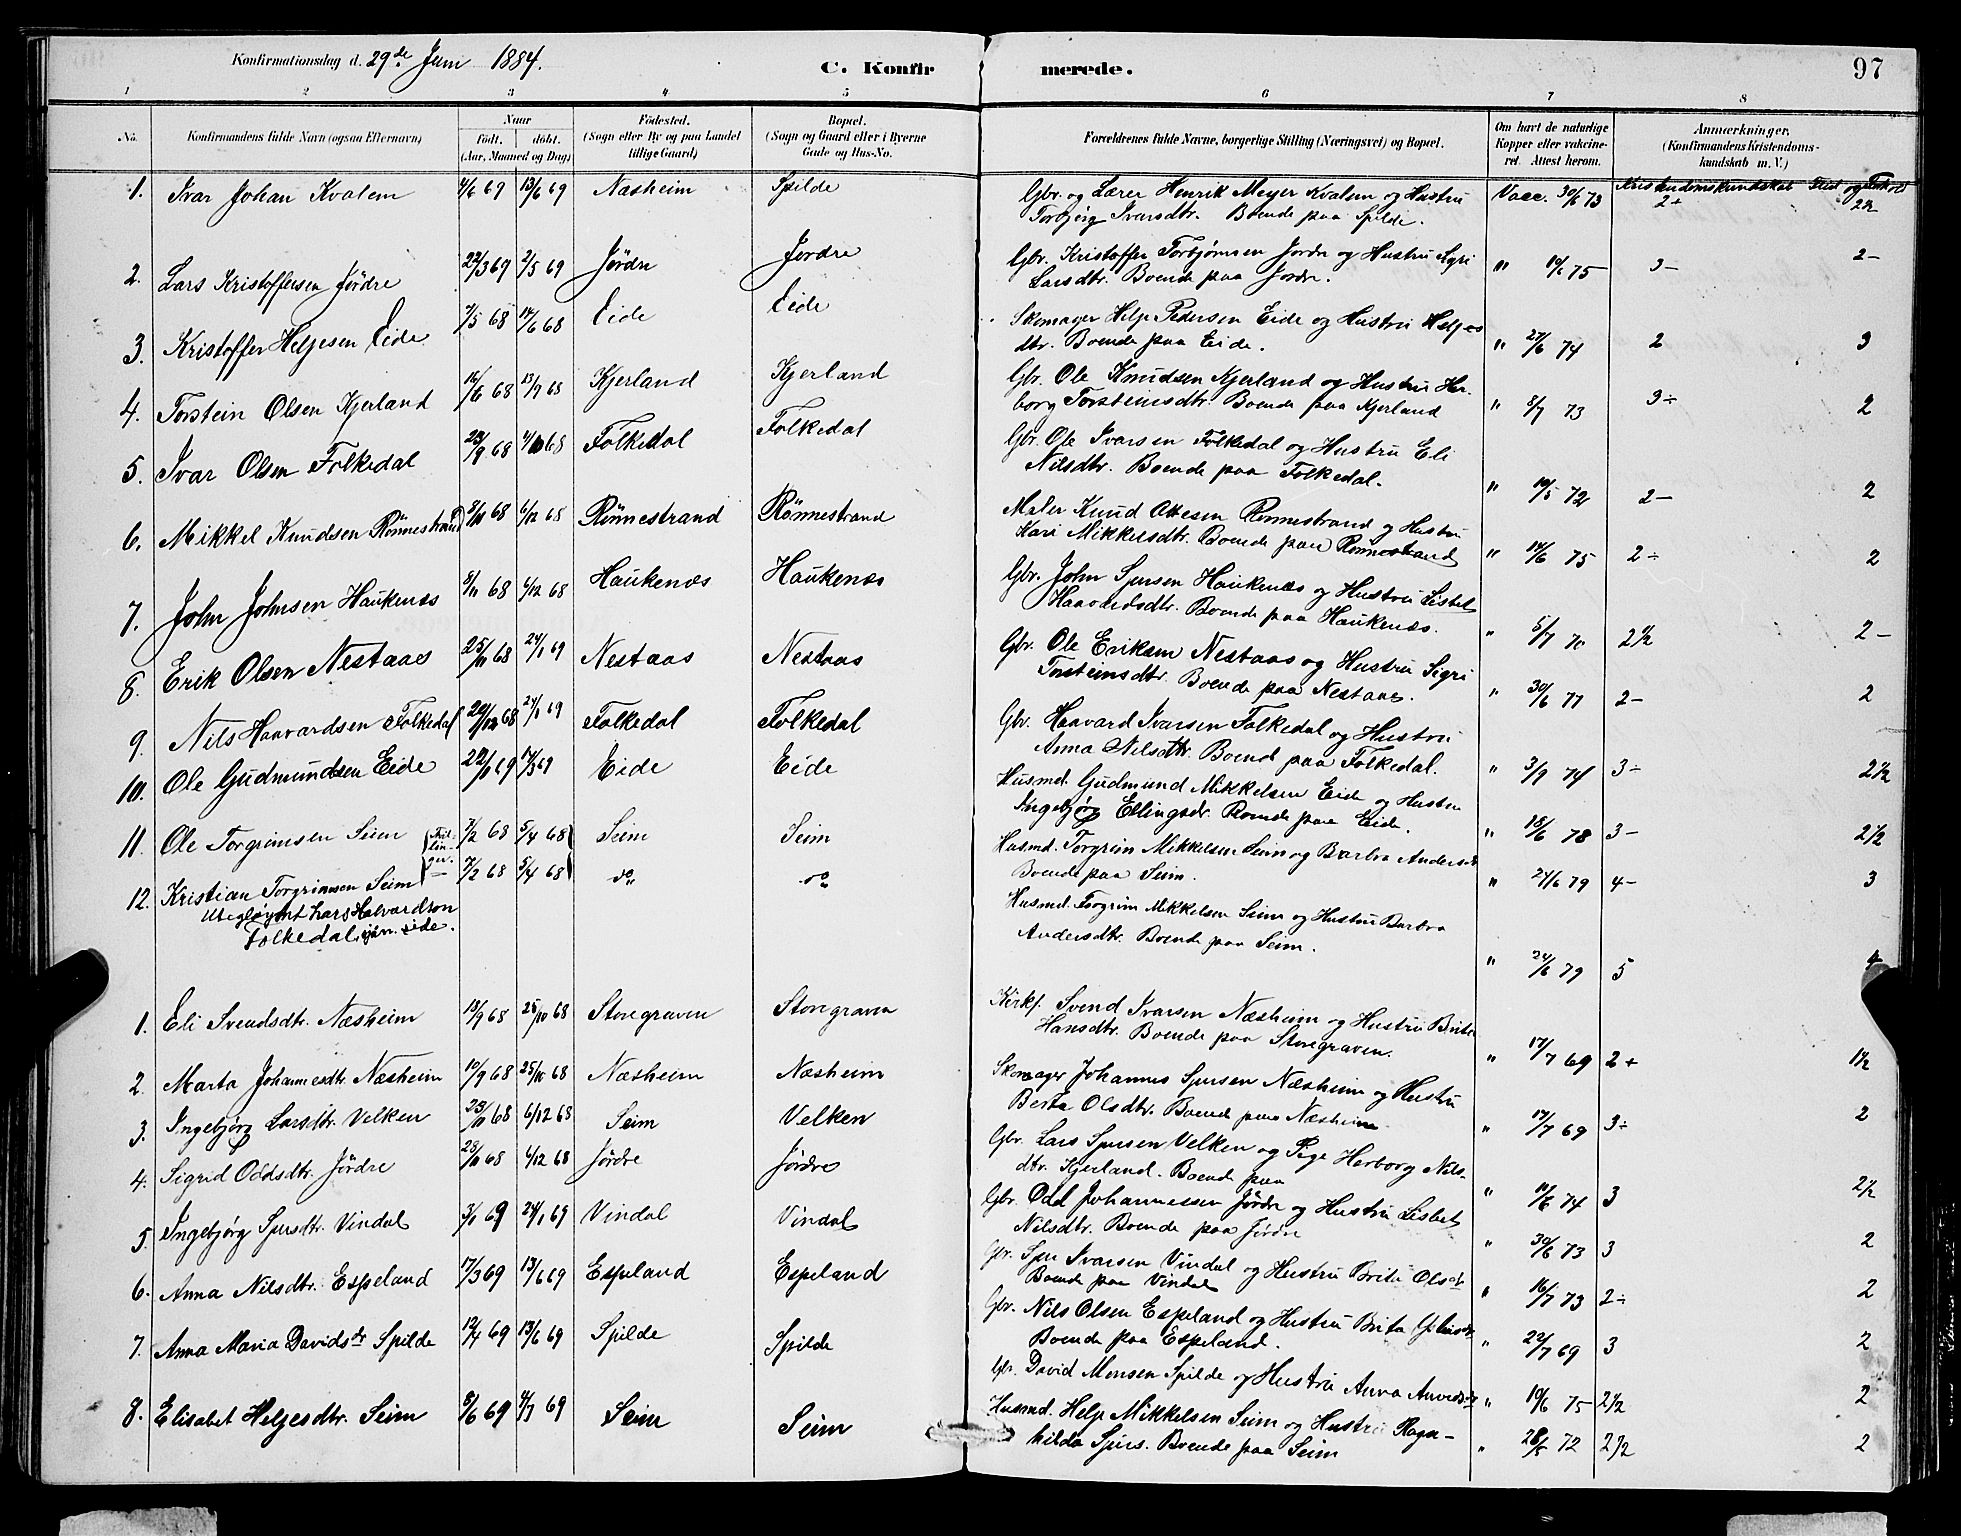 Konfirmationsdag d. 29de Juni 1884.
C. Konfirmerede.
97
1 2 3 4 5 6 7 8
No.
Konfirmandens fulde Navn (ogsaa Efternavn)
Naar
født. døbt.
(Aar, Maaned og Dag)
Fødested.
(Sogn eller By og paa Landet
tillige Gaard)
Bopæl.
(Sogn og Gaard eller i Byerne
Gade og Hus-No.
Forældrenes fulde Navne, borgerlige Stilling (Næringsvei) og Bopæl.
Om havt de naturlige
Kopper eller vakcine-
ret. Attest herom.
Anmærkninger.
(Konfirmandens Kristendoms-
kundskab m. V.)
Kristendomskundskab Flid og Forhold
1. Ivar Johan Kvalem 4/6 69 13/6 69 Næsheim Spilde
Gbr. og Lærer Henrik Meyer Kvalem og Hustru
Torbjörg Ivarsdtr. Boende paa Spilde. Vacc. 30/6 73 2+ 2½
2. Lars Kristoffersen Jördre 22/3 69 2/5 69 Jördre Jordre
Gbr. Kristoffer Torbjørnsen Jordre og Hustru Sigri
Larsdtr. Boende paa Jordre. " 19/6 75 3- 2-
3. Kristoffer Helgesen Eide 7/5 68 14/6 68 Eide Eide
Skomager Helge Pedersen Eide og Hustru Helges
dtr. Boende paa Eide. " 27/6 74 2 3
4. Torstein Olsen Kjerland 16/6 68 13/9 68 Kjerland Kjerland
Gbr. Ole Knudsen Kjerland og Hustru Her-
borg Torsteinsdtr. Boende paa Kjerland " 8/7 73 3÷ 2
5. Ivar Olsen Folkedal 23/9 68 4/10 68 Folkedal Folkedal
Gbr. Ole Ivarsen Folkedal og Hustru Eli
Nilsdtr. Boende paa Folkedal. " 19/5 72 2- 2
6. Mikkel Knudsen Rönnestrand 8/11 68 6/12 68 Rönnestrand Rönnestrand
Maler Knud Ottesen Rönnestrand og Hustru
Kari Mikkelsdtr. Boende paa Rönnestrand " 14/6 75 2÷ 2
7. John Johnsen Haukenæs 8/11 68 6/12 68 Haukenæs Haukenæs
Gbr. John Sjursen Haukenæs og Hustru Lisbet
Haavardsdtr. Boende paa Haukenæs. " 5/7 70 2½ 2-
8. Erik Olsen Nestaas 25/11 68 24/1 69 Nestaas Nestaas
Gbr. Ole Eriksen Nestaas og Hustru Sigri
Torsteinsdtr. Boende paa Nestaas. " 30/6 77 2- 2
9. Nils Haavardsen Folkedal 29/12 68 24/1 69 Folkedal Folkedal
Gbr. Haavard Ivarsen Folkedal og Hustru
Anna Nilsdtr. Boend paa Folkedal. " 3/9 74 3÷ 2½
10. Ole Gudmundsen Eide 22/1 69 14/3 69 Eide Eide
Husmd. Gudmund Mikkelsen Eide og Hustru
Ingebjörg Ellingsdr. Boende paa Eide. " 18/6 78 3- 2½
11. Ole Torgrimsen Seim (Tvil-
lin-
ger. 7/2 68 5/4 68 Seim Seim
Husmd. Torgrim Mikkelsen Seim og Barbra Andersdtr
Boende paa Seim. " 24/6 79 4- 3
12. Kristian Torgrimsen Seim 7/2 68 5/4 68 do do
Utegløymt Lars Halvardson
Folkedal, gjæn. Eide.
Husmd. Torgrim Mikkelsen Seim og Hustru Barbra
Andersdtr. Boende paa Seim. " 24/6 79 5 4
1. Eli Svendsdtr. Næsheim 13/9 68 25/10 68 Storegraven Storegraven
Kirks. Svend Ivarsen Næsheim og Hustru Brita
Hansdtr. Boende paa Storegraven. " 17/7 69 2+ 1½
2. Marta Johannesdtr. Næsheim 10/9 68 25/10 68 Næsheim Næsheim
Skomager Johannes Sjursen Næsheim og Hustru
Berta Olsdtr. Boende paa Næsheim " 17/7 69 3÷ 2
3. Ingebjörg Larsdtr. Velken 23/11 68 6/12 68 Seim Velken
Gbr. Lars Sjursen Velken og Pige Herborg Nils-
dtr. Kjerland. Boende paa " 11/6 74 3 2½
4. Sigrid Oddsdtr. Jördre 28/11 68 6/12 68 Jördre Jördre
Gbr. Odd Johannessen Jördre og Hustru Lisbet
Nilsdtr. Boende paa Jördre " 30/6 73 3 2
5. Ingebjörg Sjursdtr. Vindal 3/1 69 24/1 69 Vindal Vindal
Gbr. Sjur Ivarsen Vindal og Hustru Brita Olsdtr
Boende paa Vindal " 16/7 73 2÷ 2
6. Anna Nilsdtr. Espeland 17/3 69 13/6 69 Espeland Espeland
Gbr. Nils Olsen Espeland og Hustru Brita
Boende paa Espeland. " 22/7 69 3 2
7. Anna Maria Davidsdr Spilde 12/4 69 13/6 69 Spilde Spilde
Gbr. David Monsen Spilde og Hustru Anna " 19/6 75 2½ 2
8. Elisabet Helgesdtr. Seim 8/6 69 4/7 69 Seim Seim
Husmd. Helge Mikkelsen Seim og Hustru Ragn-
hilda Sjurs. Boende paa Seim " 28/5 72 2½ 2